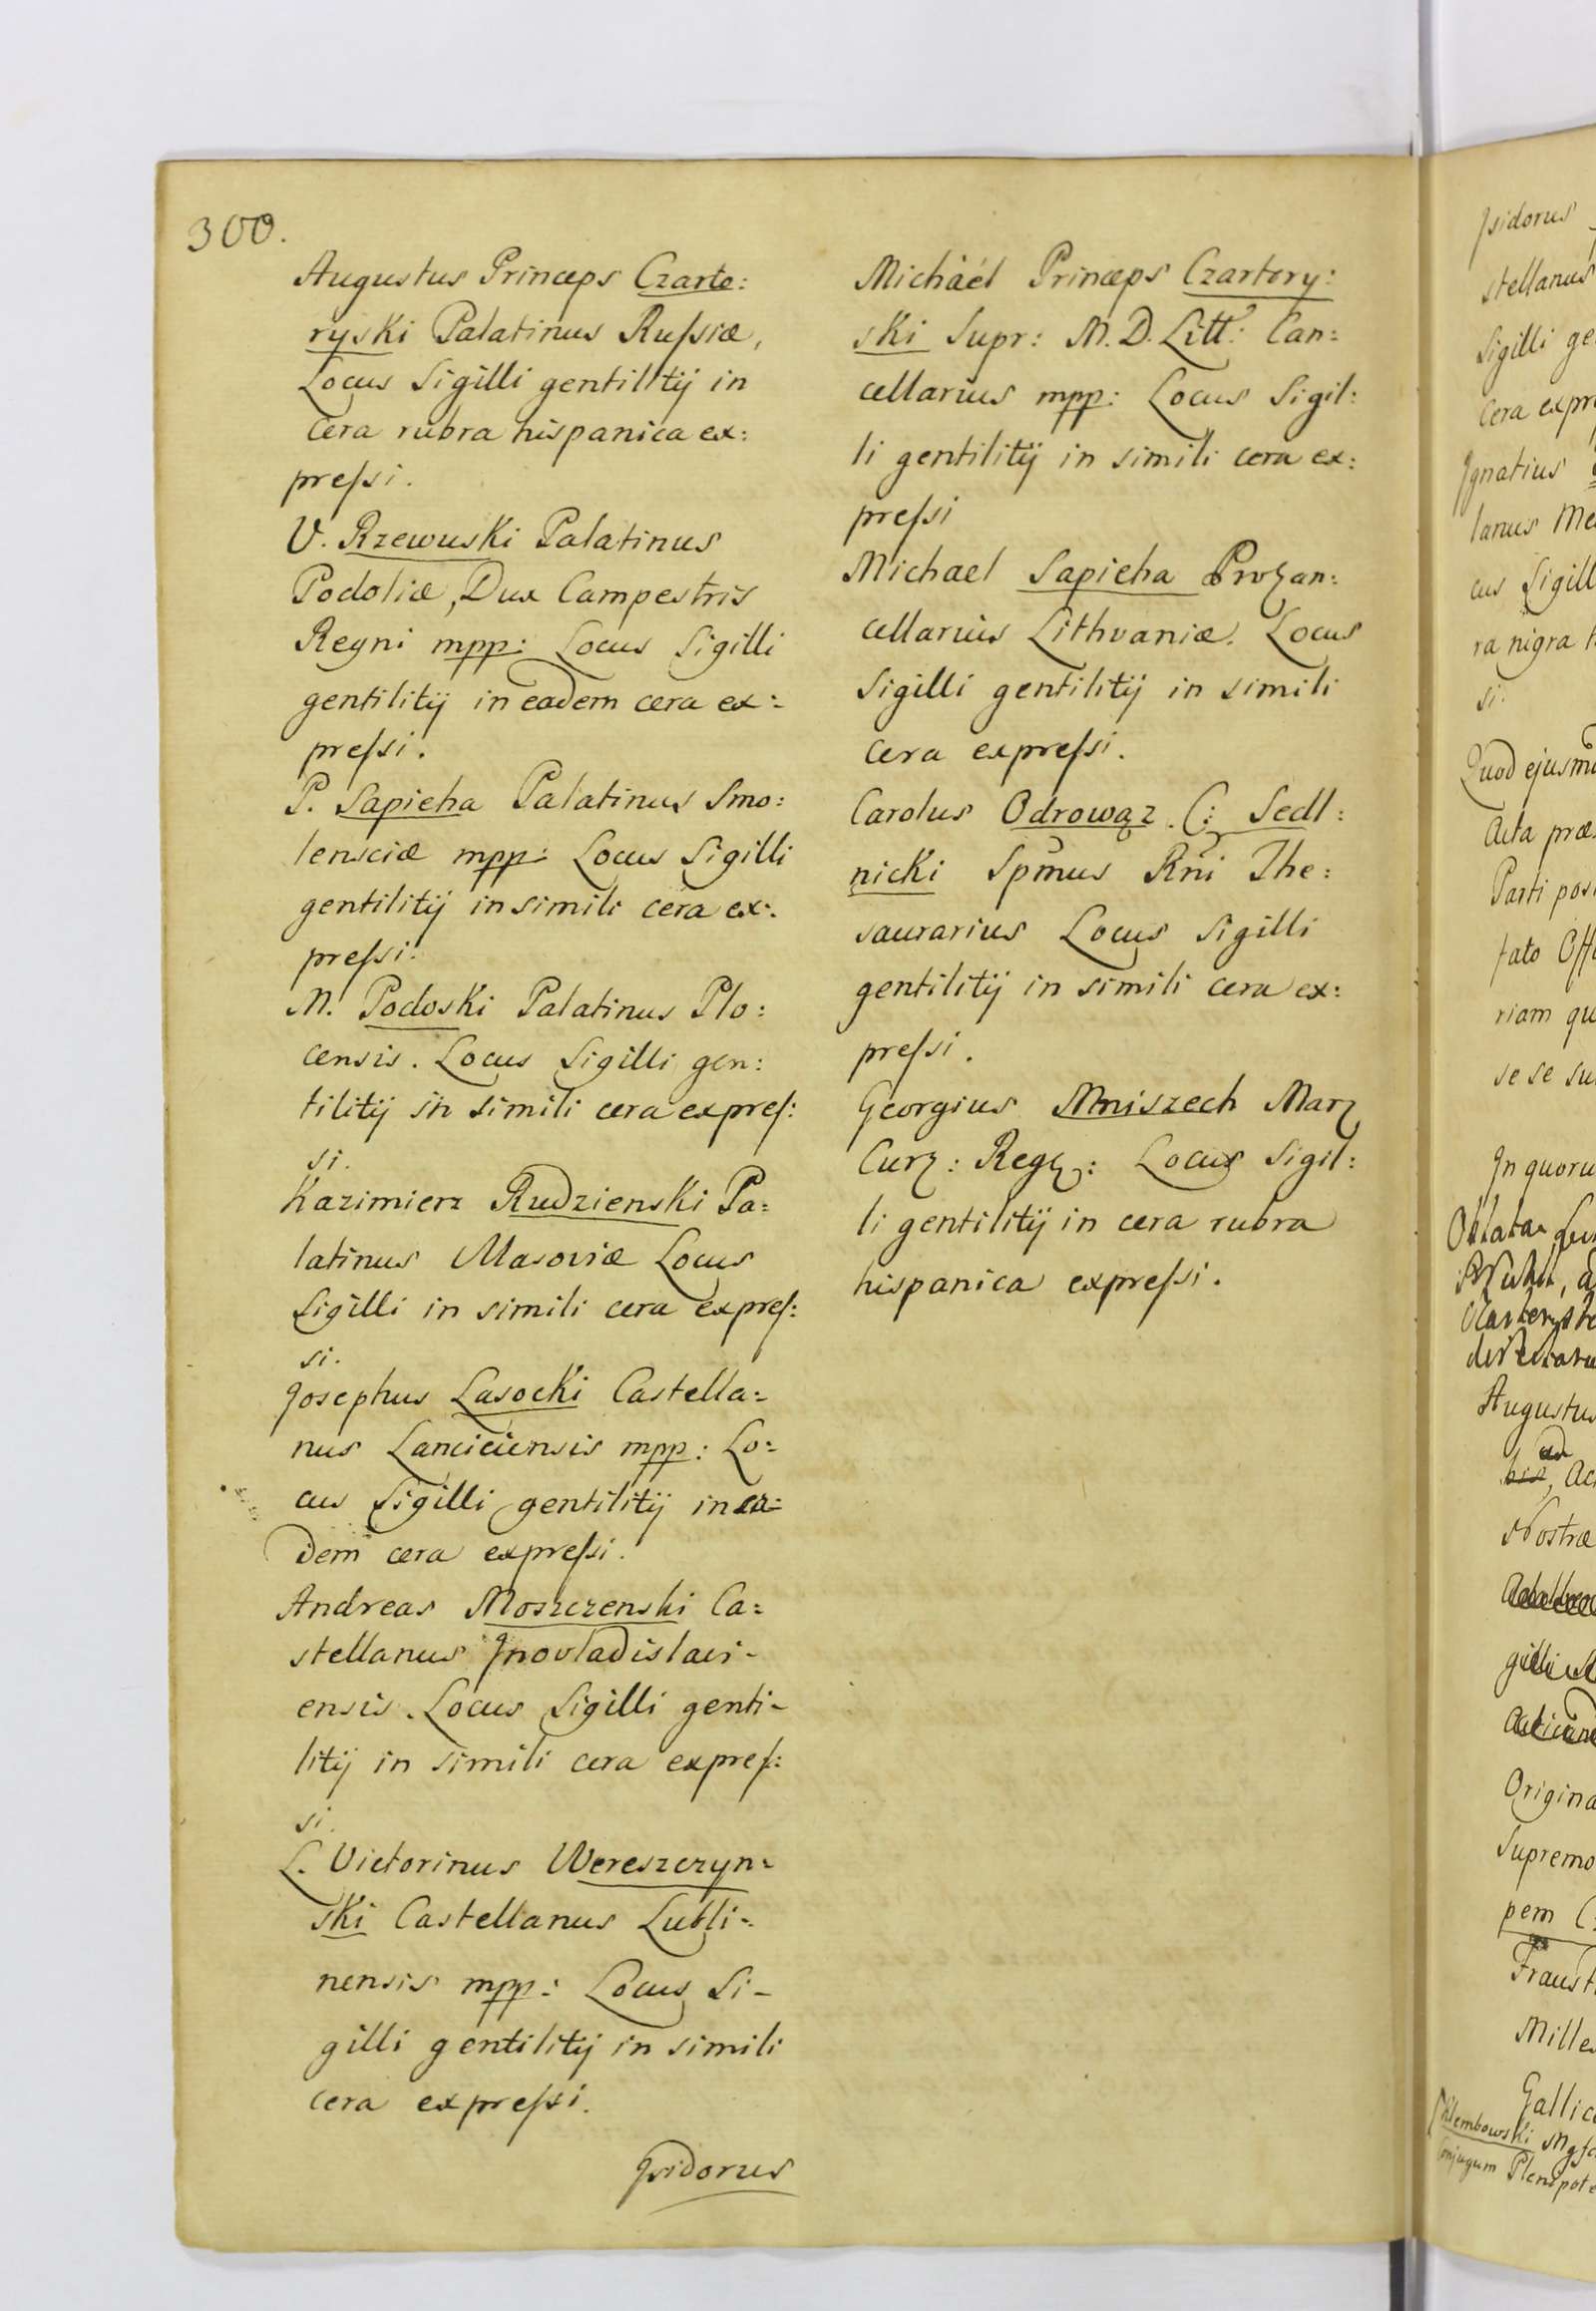 300.
Augustus Princeps Czarto:
ryski Palatinus Russiæ,
Locus Sigilli gentilitij in
Cera rubra hispanica ex:
pressi.
V. Rzewuski Palatinus
Podoliæ, Dux Campestris
Regni mpp: Locus Sigilli
gentilitij in eadem cera ex:
pressi.
P. Sapieha Palatinus Smo:
lensciæ mpp: Locus Sigilli
gentilitij in simili cera ex:
pressi.
M. Podoski Palatinus Plo:
censis. Locus Sigilli gen:
tilitij in simili cera expres:
si.
Kazimierz Rudzienski Pa:
latinus Masoviæ Locus
Sigilli in simili cera expres:
si.
Josephus Lasocki Castella:
nus Lanciciensis mpp: Lo:
cus Sigilli gentilitij in ea:
dem cera expressi.
Andreas Moszczenski Ca:
stellanus Jnovladislavi-
ensis. Locus Sigilli genti-
litij in simili cera expres:
si.
L. Victorinus Wereszczyn:
ski Castellanus Lubli:
nensis mpp: Locus Si-
gilli gentilitij in simili
cera expressi.
Jsidorus
Michaél Princeps Czartory:
ski Supr: M. D. Litt: Can:
cellarius mpp: Locus Sigil:
li gentilitij in simili cera ex:
pressi
Michael Sapieha Proʒan:
cellarius Lithvaniæ. Locus
Sigilli gentilitij in simili
Cera expressi.
Carolus Odrowąz. C: Sedl:
nicki Spmus Rni The:
saurarius Locus Sigilli
gentilitij in simili cera ex:
pressi.
Georgius Mniszech Marʒ
Curʒ: Regʒ: Locus Sigil:
li gentilitij in cera rubra
hispanica expressi.
Jsidorus
stellanus
Sigilli ge
Cera expr
Jgnatius
lanus Me
cus Sigill
ra nigra
si.
Quod ejusmo
Acta præ
Parti pos
tato Offi
riam qu
se se su
Jn quoru
Oblatæ
Augustus
Nostræ
Origina
Supremo
pem
Fraust
Mille
Gallic